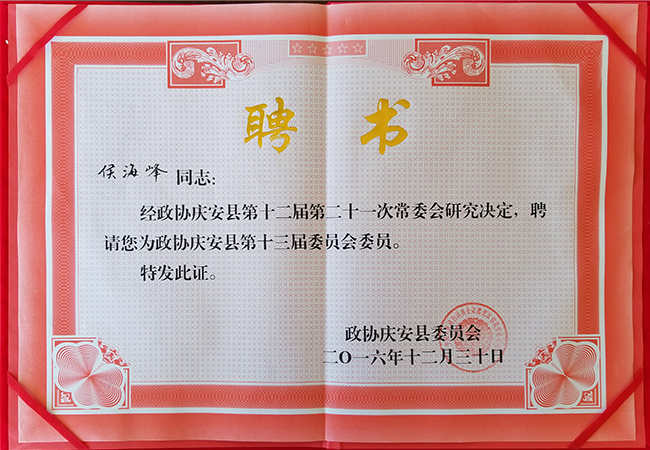 聘 书
侯海峰 同志：
经政协庆安县第十二届第二十一次常委会研究决定，聘
请您为政协庆安县第十三届委员会委员。
特发此证。
政协庆安县委员会
二〇一六年十二月三十日